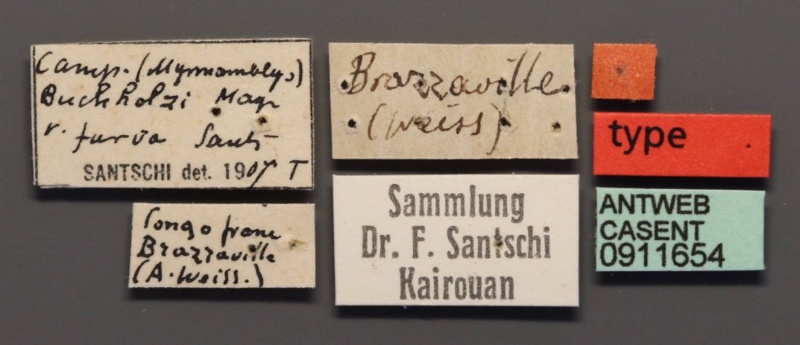 Camp. (Myrmamblys)
Buchholzi Mayr
v. furva Sants
SANTSCHI det. 190 T
Congo franc
Brazzaville
(A. Weiss.)
Brazzaville.
(Weiss)
Sammlung
Dr. F. Santschi
Kairouan
type
ANTWEB
CASENT
0911654